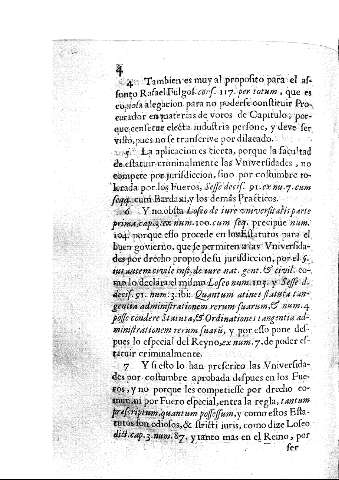 4
4 Tambien es muy al proposito para el as-
sunto Rafael Fulgos. cons. 117. per totum, que es
copiosa alegacion para no poderse constituir Pro-
curador en materias de votos de Capitulo, por-
que censetur electa industria personę, y deve ser
visto, pues no se transcrive por dilatado.
5 La aplicacion es cierta, porque la facultad
de estatuir criminalmente las Vniversidades, no
compete por jurisdiccion, sino por costumbre to-
lerada por los Fueros, Sesse decis. 91. ex nu. 7. cum
seqq. cum Bardaxi, y los demàs Practicos.
6 Y no obsta Loseo de iure vniversitatis parte
prima, cap. 3. ex num. 100. cum seq. precipuè num.
104. porque esso procede en los Estatutos para el
buen govierno, que se permiten a las Vniversida-
des por derecho propio de su jurisdiccion, por el §.
ius autem civile inst. de iure nat. gent. & civil. co-
mo lo declara el mismo Loseo num. 103. y Sesse d.
decis. 91. num. 3. ibi: Quantum atinet statuta tan-
gentia administrationem rerum suarum, & num. 4.
posse condere Statuta, & Ordinationes tangentia ad-
ministrationem rerum suarū, y por esso pone des-
pues lo especial del Reyno, ex num. 7. de poder es-
tatuir criminalmente.
7 Y si esto lo han prescrito las Vniversida-
des por costumbre aprobada despues en los Fue-
ros, y no porque les competiesse por drecho co-
mun, ni por Fuero especial, entra la regla, tantum
prescriptum, quantum possessum, y como estos Esta-
tutos son odiosos, & stricti iuris, como dize Loseo
dict. cap. 3. num. 87. y tanto mas en el Reyno, por
ser